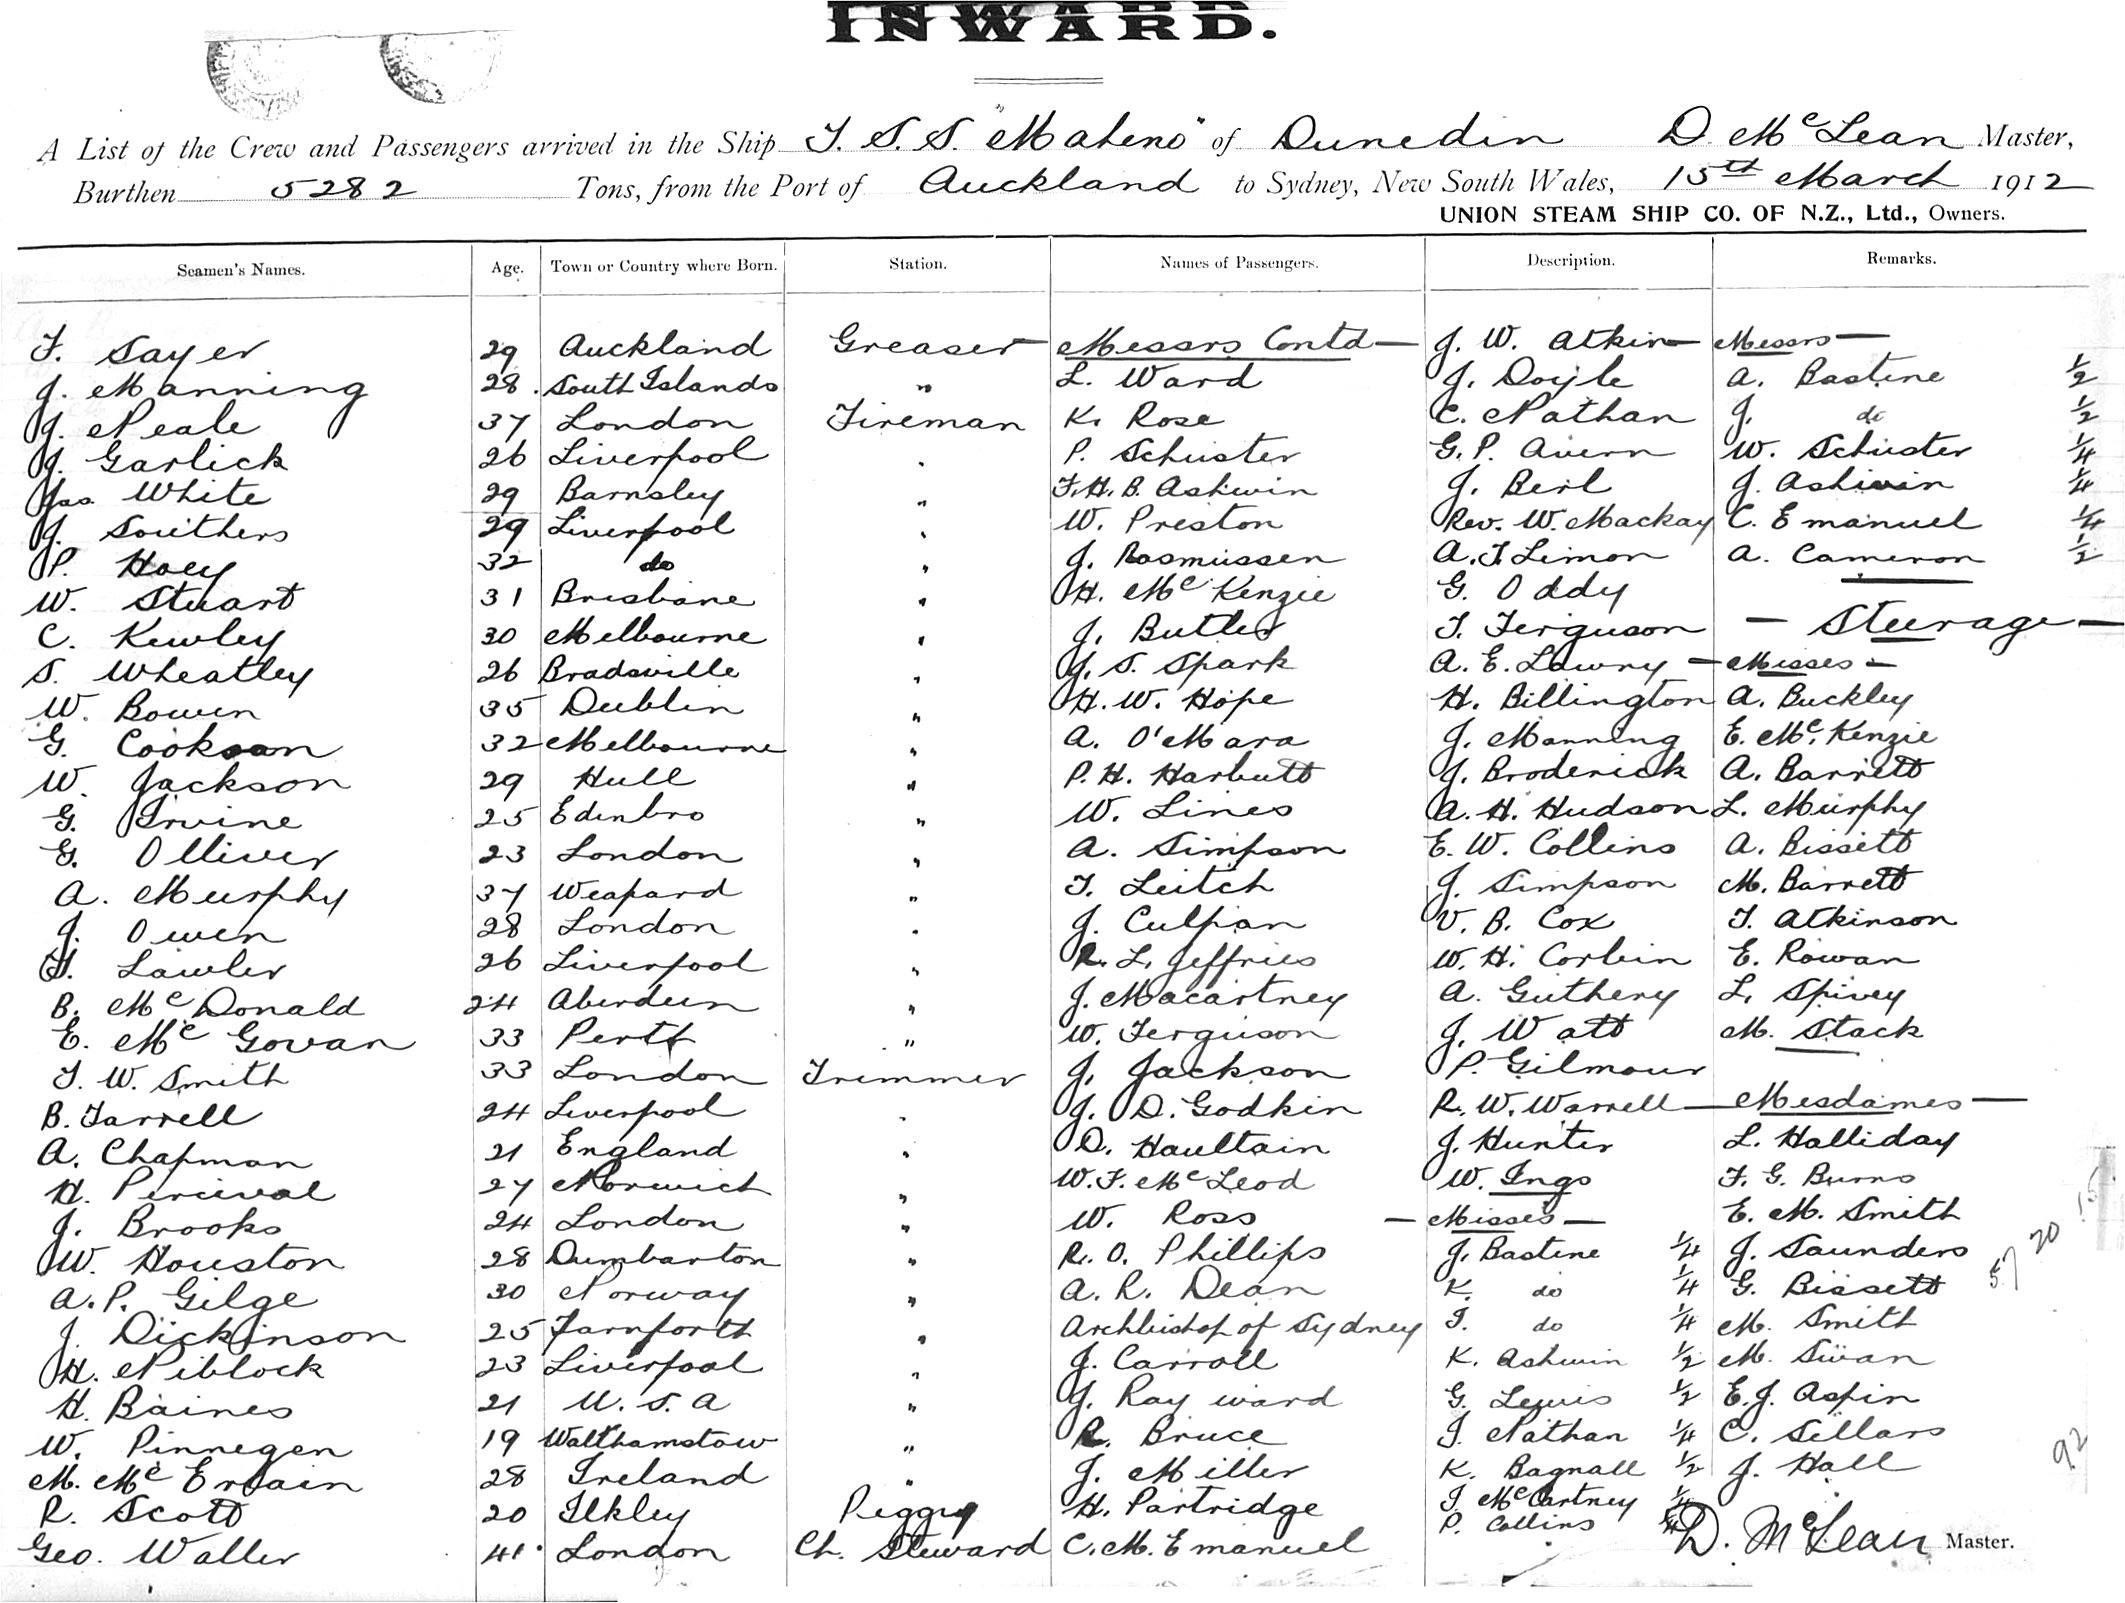 INWARD.
A List of the Crew and Passengers arrived in the Ship T. S. S. "Maheno" of Dunedin D. McLean Master,
Burthen 5282 Tons, from the Port of Auckland to Sydney, New South Wales, 15th March 1912
UNION STEAM SHIP CO. OF N.Z., Ltd., Owners.
Seamen's Names. Age. Town or Country where Born. Station. Names of Passengers. Description. Remarks.
F. Sayer 29 Auckland Greaser Messrs Contd — J. W. Atkin — Messrs —
J. Manning 28 South Islands " L. Ward J. Doyle A. Bastine 1/2
J. Neale 37 London Fireman K. Rose C. Nathan J. do 1/2
J. Garlick 26 Liverpool " P. Schuster G. P. Avern W. Schuster 1/4
Jas. White 29 Barnsley " F. H. B. Ashwin J. Beil J. Ashwin 1/4
J. Southers 29 Liverpool " W. Preston Rev. W. Mackay C. Emanuel 1/4
P. Hoey 32 do " J. Rasmussen A. T. Limon A. Cameron 1/2
W. Stuart 31 Brisbane " H. McKenzie G. Oddy
C. Kewley 30 Melbourne " J. Butler T. Ferguson — Steerage —
S. Wheatley 26 Bradsville " J. S. Spark A. E. Lowry — Misses —
W. Bowen 35 Dublin " H. W. Hope H. Billington A. Buckley
G. Cookson 32 Melbourne " A. O'Mara J. Manning E. McKenzie
W. Jackson 29 Hull " P. H. Harbutt J. Broderick A. Barrett
G. Irvine 25 Edinbro " W. Lines A. H. Hudson L. Murphy
G. Olliver 23 London " A. Simpson E. W. Collins A. Bissett
A. Murphy 37 Weapard " T. Leitch J. Simpson M. Barrett
J. Owen 28 London " J. Culpan V. B. Cox T. Atkinson
T. Lawler 26 Liverpool " R. L. Jeffries W. H. Corbin E. Rowan
B. McDonald 24 Aberdeen " J. Macartney A. Guthery L. Spivey
E. McGovan 33 Perth " W. Ferguson J. Watt M. Stack
T. W. Smith 33 London Trimmer J. Jackson P. Gilmour
B. Farrell 24 Liverpool " J. D. Godkin R. W. Warrell — Mesdames —
A. Chapman 21 England " D. Haultain J. Hunter L. Halliday
H. Percival 27 Norwich " W. F. McLeod W. Ings F. G. Burns
J. Brooks 24 London " W. Ross — Misses — E. M. Smith
W. Houston 28 Dumbarton " R. O. Phillips J. Bastine 1/4 J. Saunders
A. P. Gilge 30 Norway " A. R. Dean K. do 1/4 G. Bissett 57 20
J. Dickinson 25 Farnforth " Archbishop of Sydney I. do 1/4 M. Smith
H. Niblock 23 Liverpool " J. Carroll K. Ashwin 1/2 M. Swan
H. Baines 21 U. S. A " J. Rayward G. Lewis 1/2 E. J. Aspin
W. Pinnegen 19 Walthamstow " R. Bruce I. Nathan 1/4 C. Sillars
M. McErlain 28 Ireland " J. Miller K. Bagnall 1/2 J. Hall 92
R. Scott 20 Ilkley Peggy H. Partridge I. McCartney 1/4
P. Collins
Geo. Waller 41 London Ch. Steward C. M. Emanuel D. McLean Master.